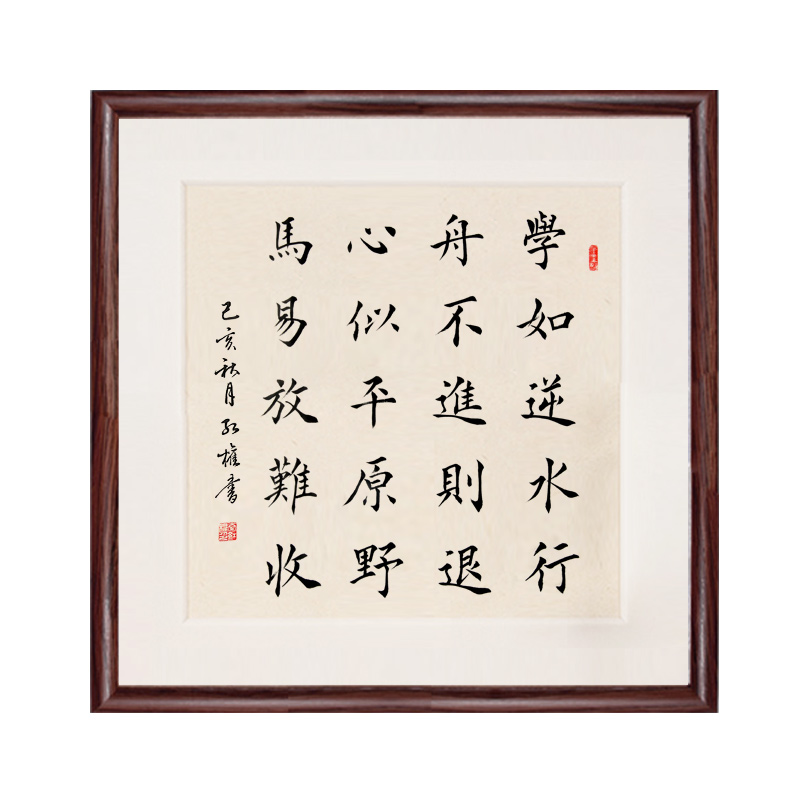 學如逆水行
舟不進則退
心似平原野
馬易放難收
己亥秋月 紅權書